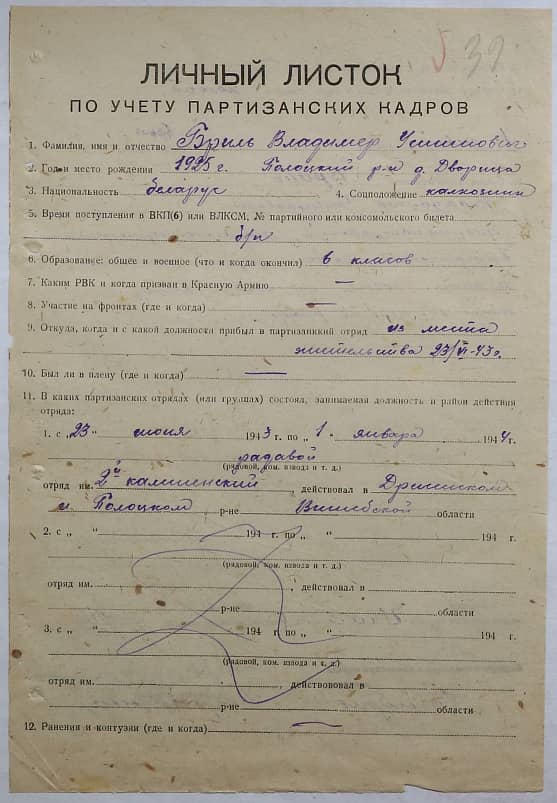 39
ЛИЧНЫЙ ЛИСТОК
ПО УЧЕТУ ПАРТИЗАНСКИХ КАДРОВ
1. Фамилия, имя и отчество Бриль Владимер
2. Год и место рождения 1925 г. Полоцкий р-н д. Дворица
3. Национальность беларус 4. Соцположение
5. Время поступления в ВКП(б) или ВЛКСМ, № партийного или комсомольского билета
б/п
6. Образование: общее и военное (что и когда окончил) 6 класов
7. Каким РВК и когда призван в Красную Армию —
8. Участие на фронтах (где и когда) —
9. Откуда, когда и с какой должности прибыл в партизанкий отряд из места
жительства 23/VI-43г.
10. Был ли в плену (где и когда) —
11. В каких партизанских отрядах (или группах) состоял, занимаемая должность и район действия
отряда:
1. с „23" июня 1943 г. по „1 " января 1944 г.
радавой
(рядовой, ком. взвода и т. д.)
отряд им. 2й , действовал в Дрисском
и Полоцком р-не Витебской области
2. с „ " 194 г. по „ " 194 г.
(рядовой, ком. взвода и т. д.)
отряд им. , действовал в
р-не области
3. с „ " 194 г. по „ " 194 г.
(рядовой, ком. взвода и т. д.)
отряд им. , действововал в
р-не области
12. Ранения и контузии (где и когда) —